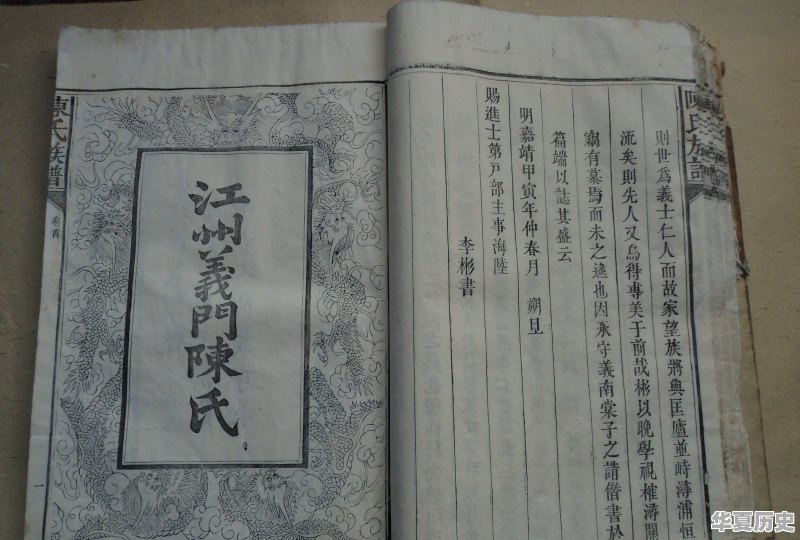 陳氏族譜
則世為義士仁人而故家望族將與匡廬並峙潯浦恒
流矣則先人又烏得專美于前哉彬以晚學視榷潯關
竊有慕焉而未之逮也因承守義南棠子之請僭書於
篇端以誌其盛云
明嘉靖甲寅年仲春月 朔旦
賜進士第戶部主事海陸
李彬書
江州義門陳氏
陳氏族譜
卷首
一
华夏历史